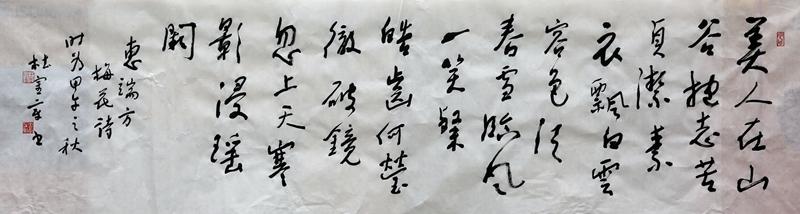 美人在山
谷抱志苦
貞潔素
衣飄白雲
容色淡
春雪臨风
一笑粲
皓齒何瑩
徹破鏡
忽上天寒
影浸瑶
闕
惠端方
梅花詩
时为甲午之秋
杜宝